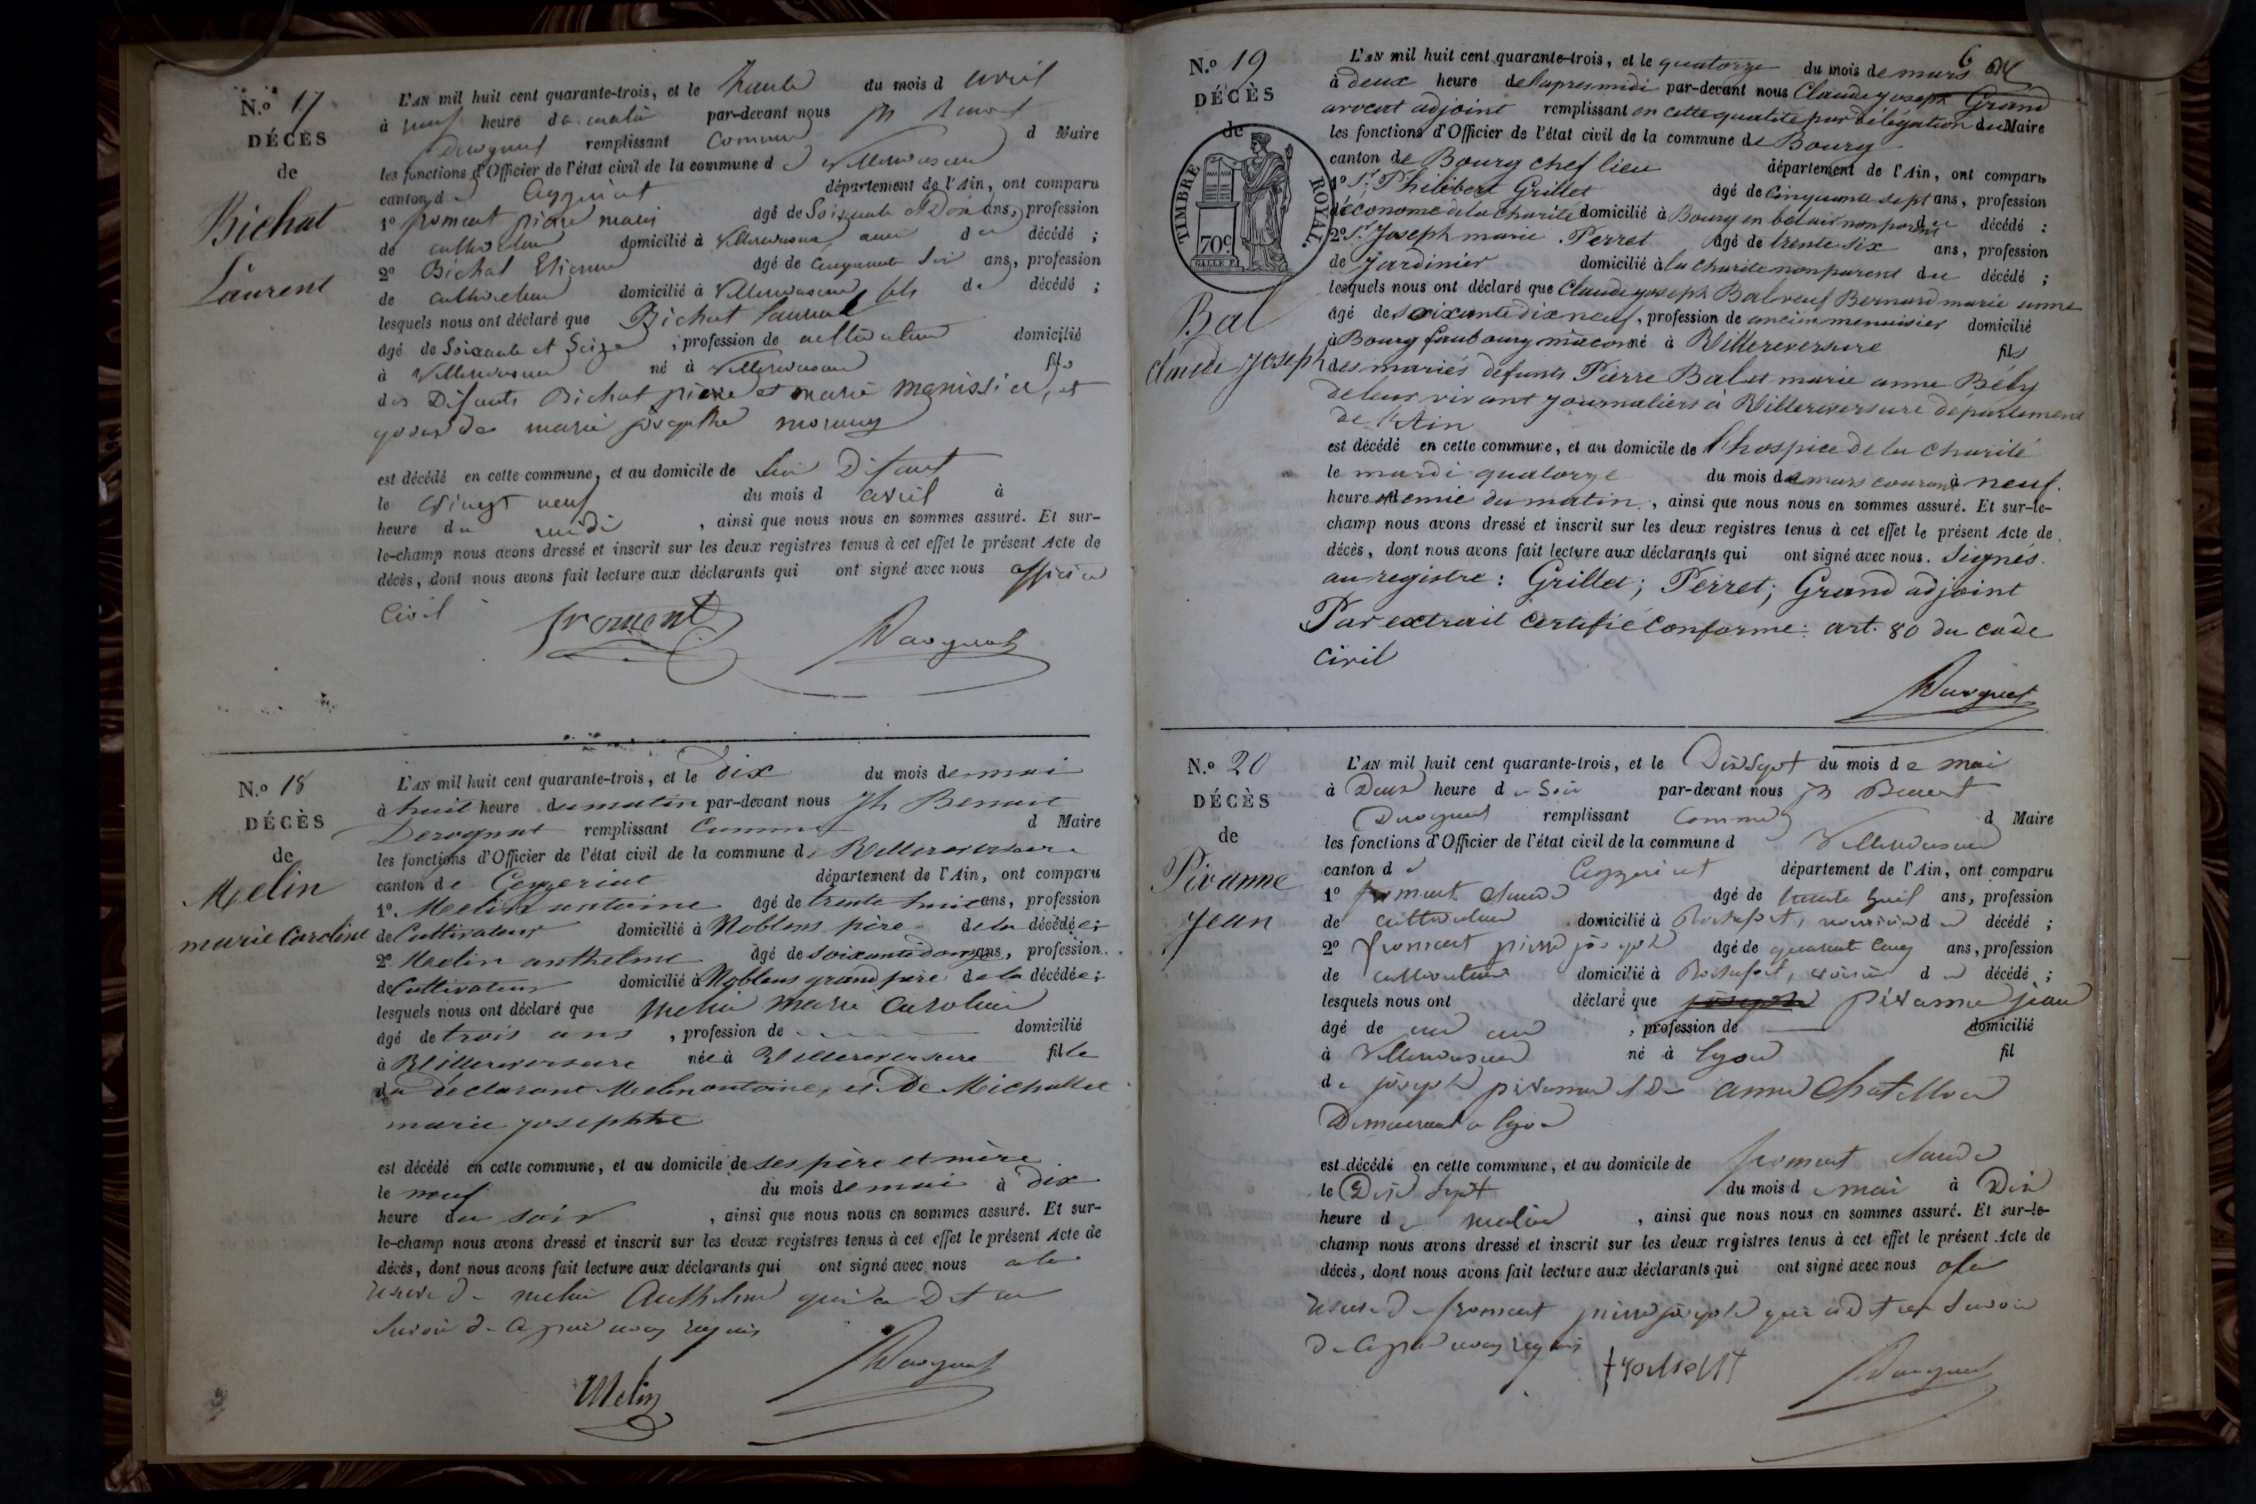 N.º 17
DÉCÈS
de
Bichat
Laurent
L'AN mil huit cent quarante-trois, et le trente du mois d avril
à neuf heure du matin par-devant nous Jh Benoit
Derognat remplissant comme d Maire
les fonctions d'Officier de l'état civil de la commune de Villereversure
canton de Ceyzeriat département de l'Ain, ont comparu
1º froment pierre marie âgé de Soixante et dix ans, profession
de cultivateur domicilié à Villereversure ami du décédé ;
2º Bichat Etienne âgé de cinquante Six ans, profession
de cultivateur domicilié à Villereversure fils du décédé ;
lesquels nous ont déclaré que Bichat Laurent
âgé de Soixante et Seize , profession de cultivateur domicilié
à Villereversure né à Villereversure fils
des Défunts Bichat pierre et marie manissier, et
époux de marie josephte
est décédé en cette commune, et au domicile de lui Défunt
le vingt neuf du mois d avril à
heure du midi , ainsi que nous nous en sommes assuré. Et sur-
le-champ nous avons dressé et inscrit sur les deux registres tenus à cet effet le présent Acte de
décès, dont nous avons fait lecture aux déclarants qui ont signé avec nous officier
civil
froment Derognat
N.º 18
DÉCÈS
de
Melin
marie Caroline
L'AN mil huit cent quarante-trois, et le dix du mois de mai
à huit heure du matin par-devant nous Jh Benoit
Derognat remplissant Comme d Maire
les fonctions d'Officier de l'état civil de la commune de Villereversure
canton de Ceyzeriat département de l'Ain, ont comparu
1º Melin antoine âgé de trente huit ans, profession
de Cultivateur domicilié à Noblens père de la décédée ;
2º Melin anthelme âgé de soixante douze ans, profession
de Cultivateur domicilié à Noblens grand père de la décédée ;
lesquels nous ont déclaré que Melin Marie Caroline
âgé de trois ans , profession de domicilié
à Villereversure née à Villereversure fille
du déclarant Melin antoine, et De Michallet
marie josephte
est décédé en cette commune, et au domicile de ses père et mère
le neuf du mois de mai à dix
heure du soir , ainsi que nous nous en sommes assuré. Et sur-
le-champ nous avons dressé et inscrit sur les deux registres tenus à cet effet le présent Acte de
décès, dont nous avons fait lecture aux déclarants qui ont signé avec nous a la
reserve de melin Anthelme qui a Dit ne
Savoir de ce par nous requis
Melin Derognat
6
N.º 19
DÉCÈS
de
TIMBRE ROYAL.
70c
Bal
Claude Joseph
L'AN mil huit cent quarante-trois, et le quatorze du mois de mars
à deux heure de lapresmidi par-devant nous Claude Joseph Grand
avocat adjoint remplissant en cette qualité par délégation du Maire
les fonctions d'Officier de l'état civil de la commune de Bourg
canton de Bourg chef lieu département de l'Ain, ont comparu
1º Sr. Philibert Grillet âgé de Cinquante sept ans, profession
d'économe de la charité domicilié à Bourg en belair non parent du décédé ;
2º Sr. Joseph marie Perret âgé de trente six ans, profession
de Jardinier domicilié à la Charité non parent du décédé ;
lesquels nous ont déclaré que Claude Joseph Bal veuf Bernard marie anne
âgé de soixante dix neuf , profession de ancien menuisier domicilié
à Bourg faubourg macon né à Villereversure fils
des mariés défunts Pierre Bal et marie anne Bély
de leur vivant journaliers à Villereversure département
de l'Ain
est décédé en cette commune, et au domicile de l'hospice de la charité
le mardi quatorze du mois de mars courant à neuf
heure et demie du matin , ainsi que nous nous en sommes assuré. Et sur-le-
champ nous avons dressé et inscrit sur les deux registres tenus à cet effet le présent Acte de
décès, dont nous avons fait lecture aux déclarants qui ont signé avec nous. Signés
au registre : Grillet ; Perret ; Grand adjoint
Par extrait Certifié Conforme : art. 80 du code
civil
Derognat
N.º 20
DÉCÈS
de
Pivanne
Jean
L'AN mil huit cent quarante-trois, et le Dix Sept du mois de mai
à Deux heure du Soir par-devant nous Jh Benoit
Derognat remplissant Comme d Maire
les fonctions d'Officier de l'état civil de la commune d Villereversure
canton de Ceyzeriat département de l'Ain, ont comparu
1º froment Claude âgé de trente huit ans, profession
de cultivateur domicilié à Rochefort, nourricier du décédé ;
2º froment pierre joseph âgé de quarante cinq ans, profession
de cultivateur domicilié à Rochefort, voisin du décédé ;
lesquels nous ont déclaré que joseph pivanne jean
âgé de un an , profession de domicilié
à Villereversure né à Lyon fil
de joseph pivanne et De anne Chatillon
Demeurant a Lyon
est décédé en cette commune, et au domicile de froment Claude
le Dix Sept du mois de mai à Dix
heure du matin , ainsi que nous nous en sommes assuré. Et sur-le-
champ nous avons dressé et inscrit sur les deux registres tenus à cet effet le présent Acte de
décès, dont nous avons fait lecture aux déclarants qui ont signé avec nous a la
reserve de froment pierre joseph qui a dit ne Savoir
de ce par nous requis
froment Derognat